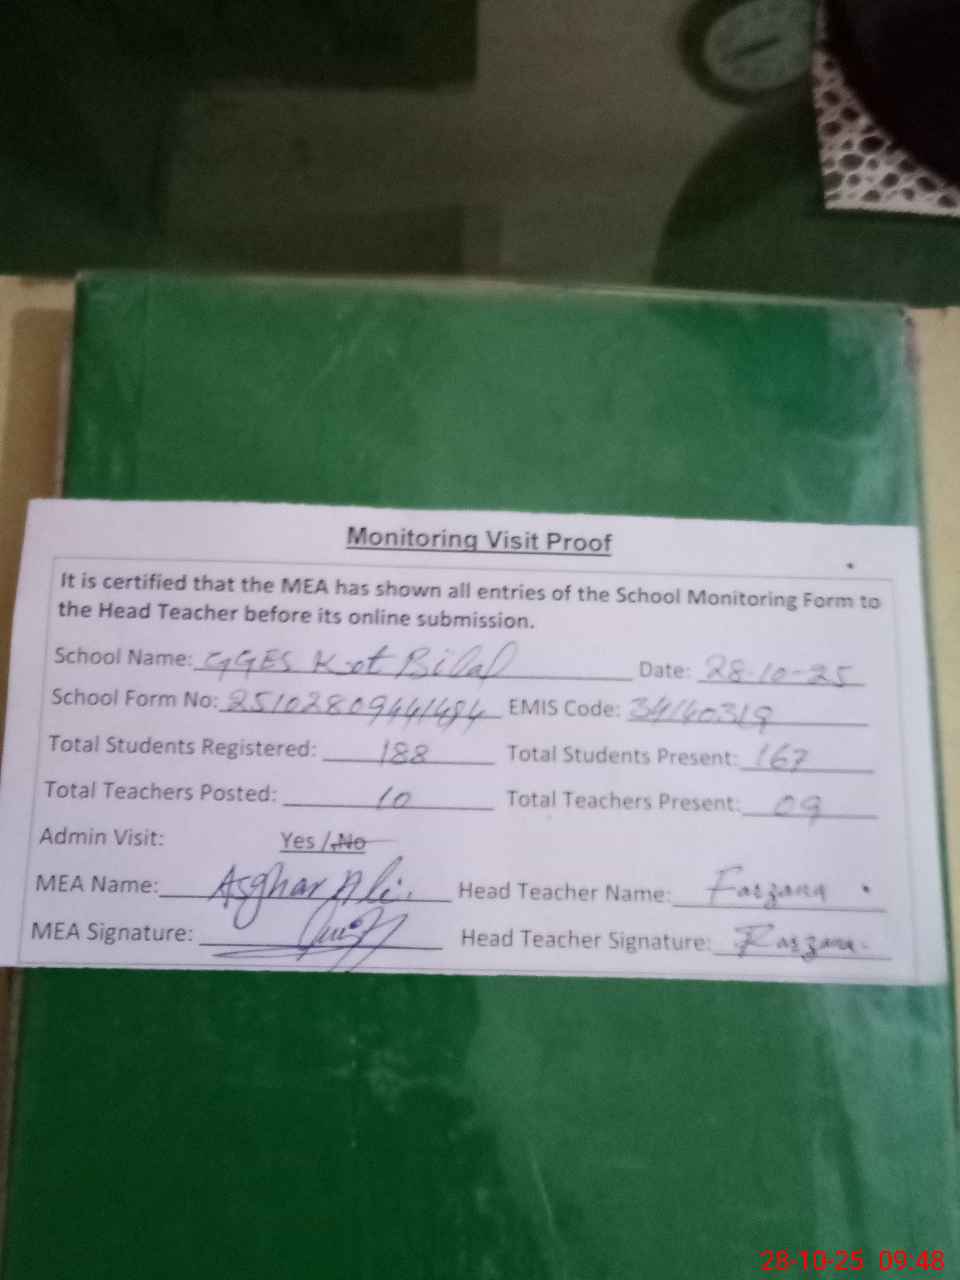 Monitoring Visit Proof
It is certified that the MEA has shown all entries of the School Monitoring Form to
the Head Teacher before its online submission.
School Name: GGES Kot Bilal Date: 28-10-25
School Form No: 25102809441484 EMIS Code: 34140319
Total Students Registered: 188 Total Students Present: 167
Total Teachers Posted: 10 Total Teachers Present: 09
Admin Visit: Yes / No
MEA Name: Asghar Ali. Head Teacher Name: Farzana
MEA Signature: Head Teacher Signature: Farzana
28-10-25 09:48